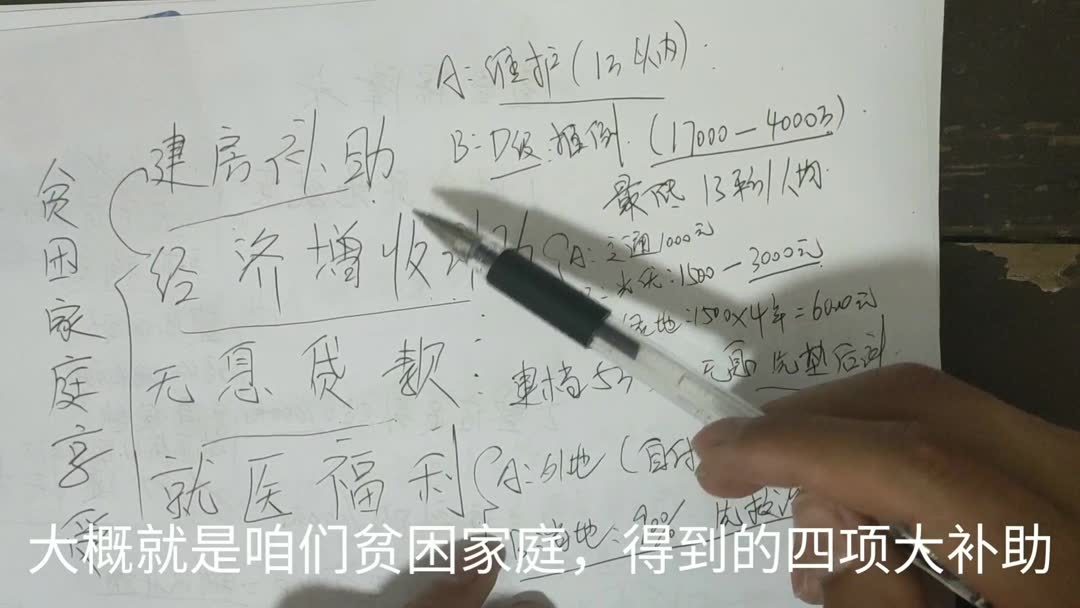 贫困家庭享受
建房补助
A: 维护(1万以内).
B: D级:推倒.(17000-40000).
最低 13平m/人均.
经济增收
A: 交通1000元
1500-3000元
地:1500×4年=6000元
无息贷款:
建档5万 无息 先垫后
就医福利
A: 外地(自付
当地:90%
大概就是咱们贫困家庭，得到的四项大补助